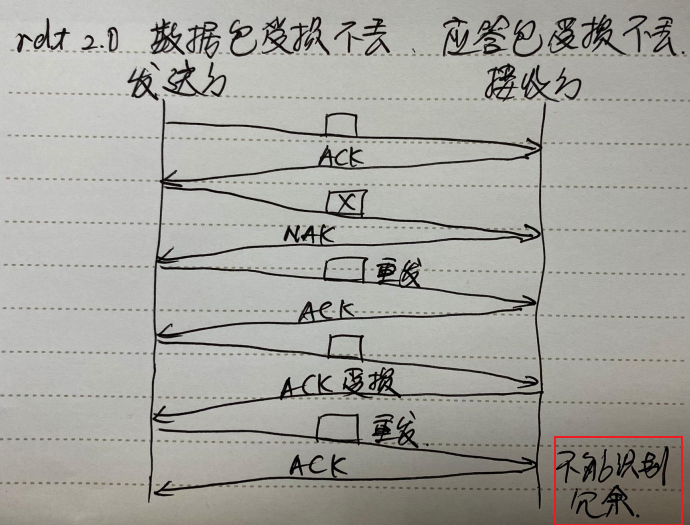 rdt 2.0 数据包受损不丢、应答包受损不丢.
发送方 接收方
ACK
X
NAK
重发
ACK
ACK 受损
重发.
ACK
不能识别
冗余.